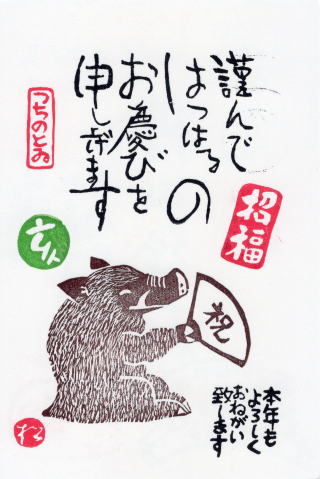 謹んで
はつはるの
お慶びを
申しあげます
招福
つちのとゐ
亥
祝
本年も
よろしく
おねがい
致します